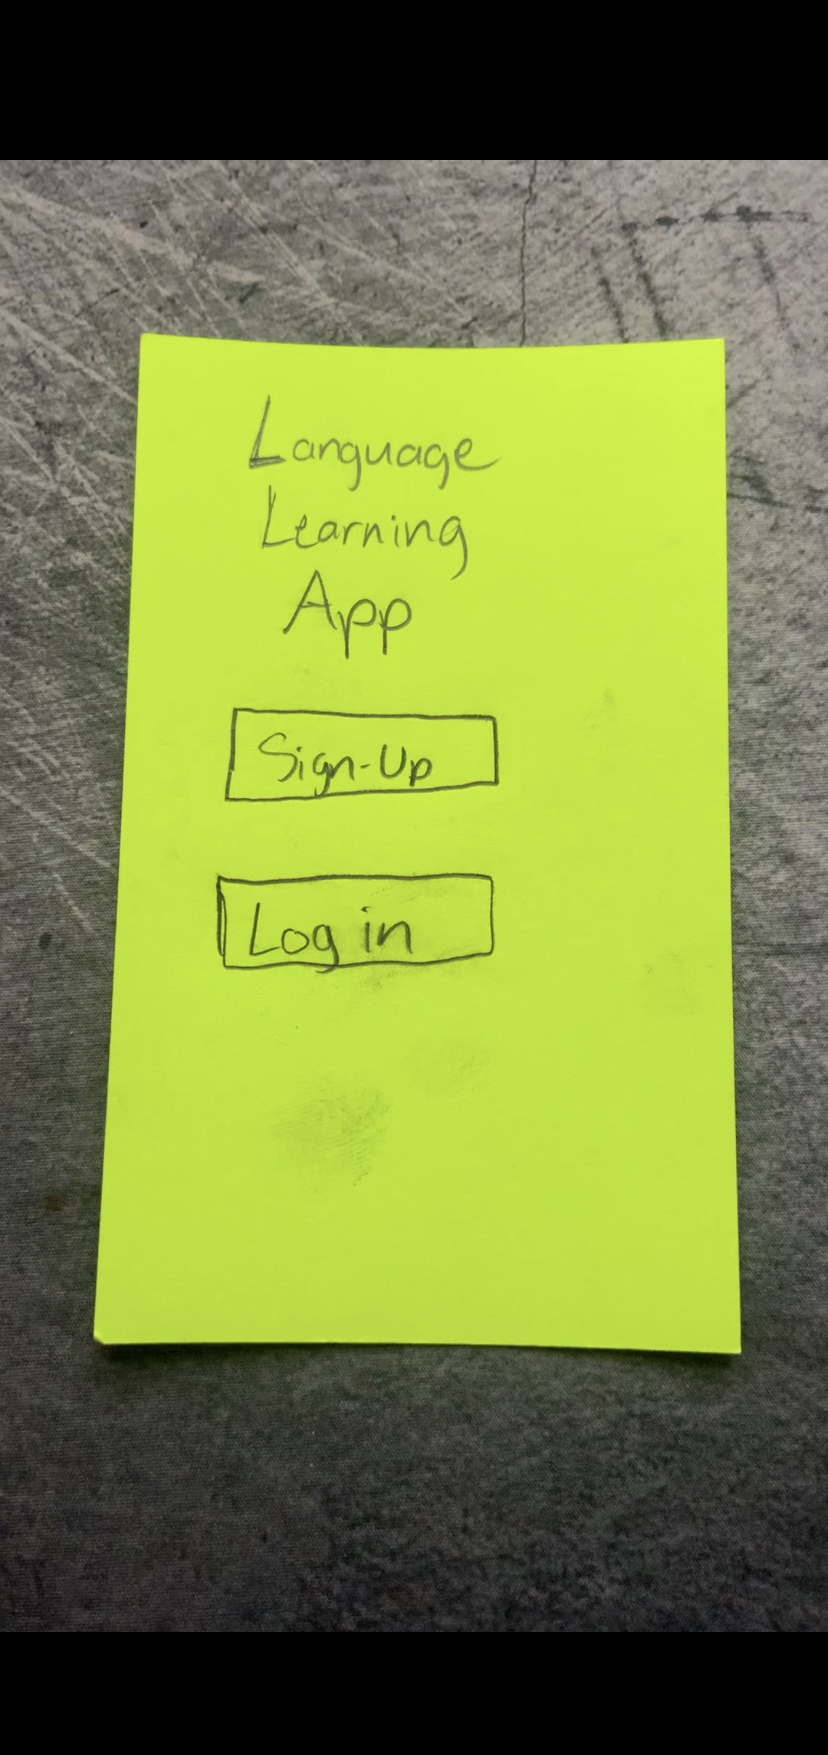 Language
Learning
App
Sign-Up
Log in